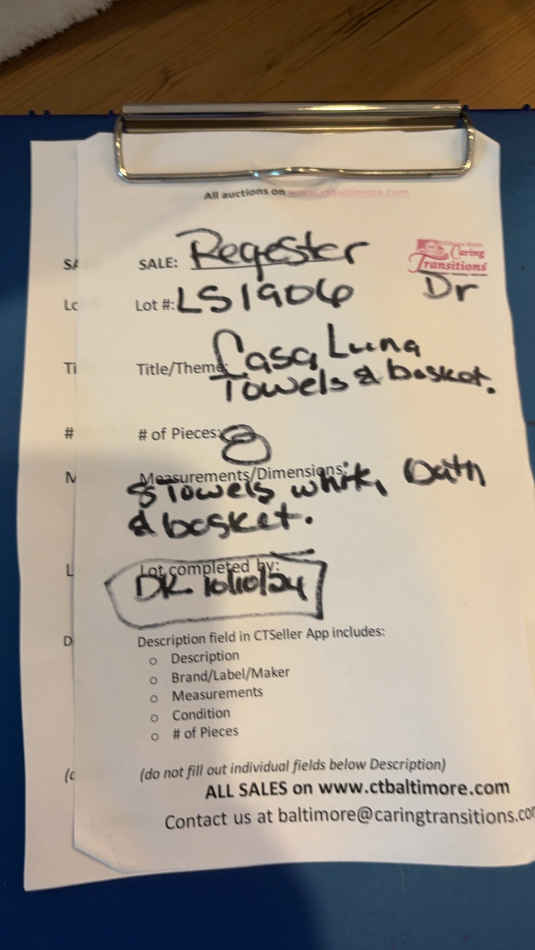 All auctions on www.ctbaltimore.com
SALE: Regester
Caring
Transitions
Lot #: LS1906
Dr
Title/Theme: Casa Luna
Towels & basket.
# of Pieces: 8
Measurements/Dimensions:
8 Towels white, Bath
& basket.
Lot completed by:
DR 10/10/24
Description field in CTSeller App includes:
o Description
o Brand/Label/Maker
o Measurements
o Condition
o # of Pieces
(do not fill out individual fields below Description)
ALL SALES on www.ctbaltimore.com
Contact us at baltimore@caringtransitions.com
SA
Lo
Ti
#
M
L
D
(c